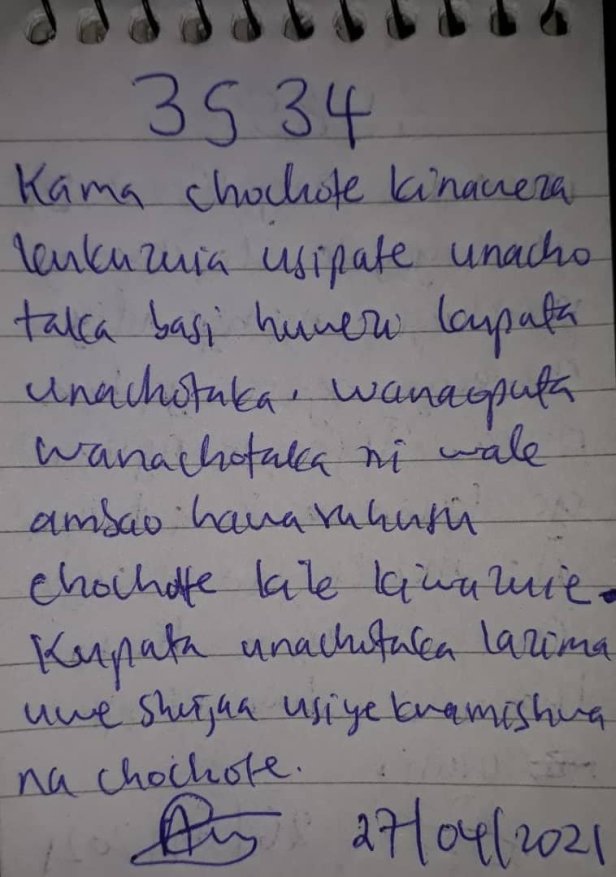 3534
Kama chochote kinaweza
kukuzuia usipate unacho
taka basi huwezi kupata
unachotaka. wanaopata
wanachotaka ni wale
ambao hawaruhusu
chochote kile kiwazuie.
Kupata unachotaka lazima
uwe shujaa usiyekwamishwa
na chochote.
27/04/2021